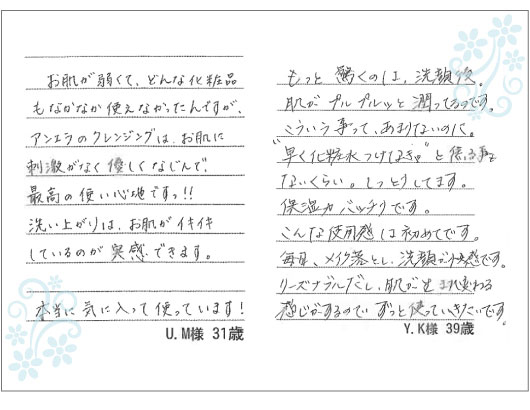 お肌が弱くて、どんな化粧品
もなかなか使えなかったんですが、
アンエラのクレンジングは、お肌に
刺激がなく優しくなじんで、
最高の使い心地ですっ!!
洗い上がりは、お肌がイキイキ
しているのが実感できます。
本当に気に入って使っています!
U.M様 31歳
もっと驚くのは、洗顔後。
肌がプルプルッと潤ってるんです。
こういう事って、あまりないのに。
"早く化粧水つけなきゃ"と焦る事も
ないくらい。しっとりしてます。
保湿力バッチリです。
こんな使用感は初めてです。
毎日、メイク落とし、洗顔が快感です。
リーズナブルだし、肌が生まれ変わる
感じがするのでずっと使っていきたいです。
Y.K様 39歳